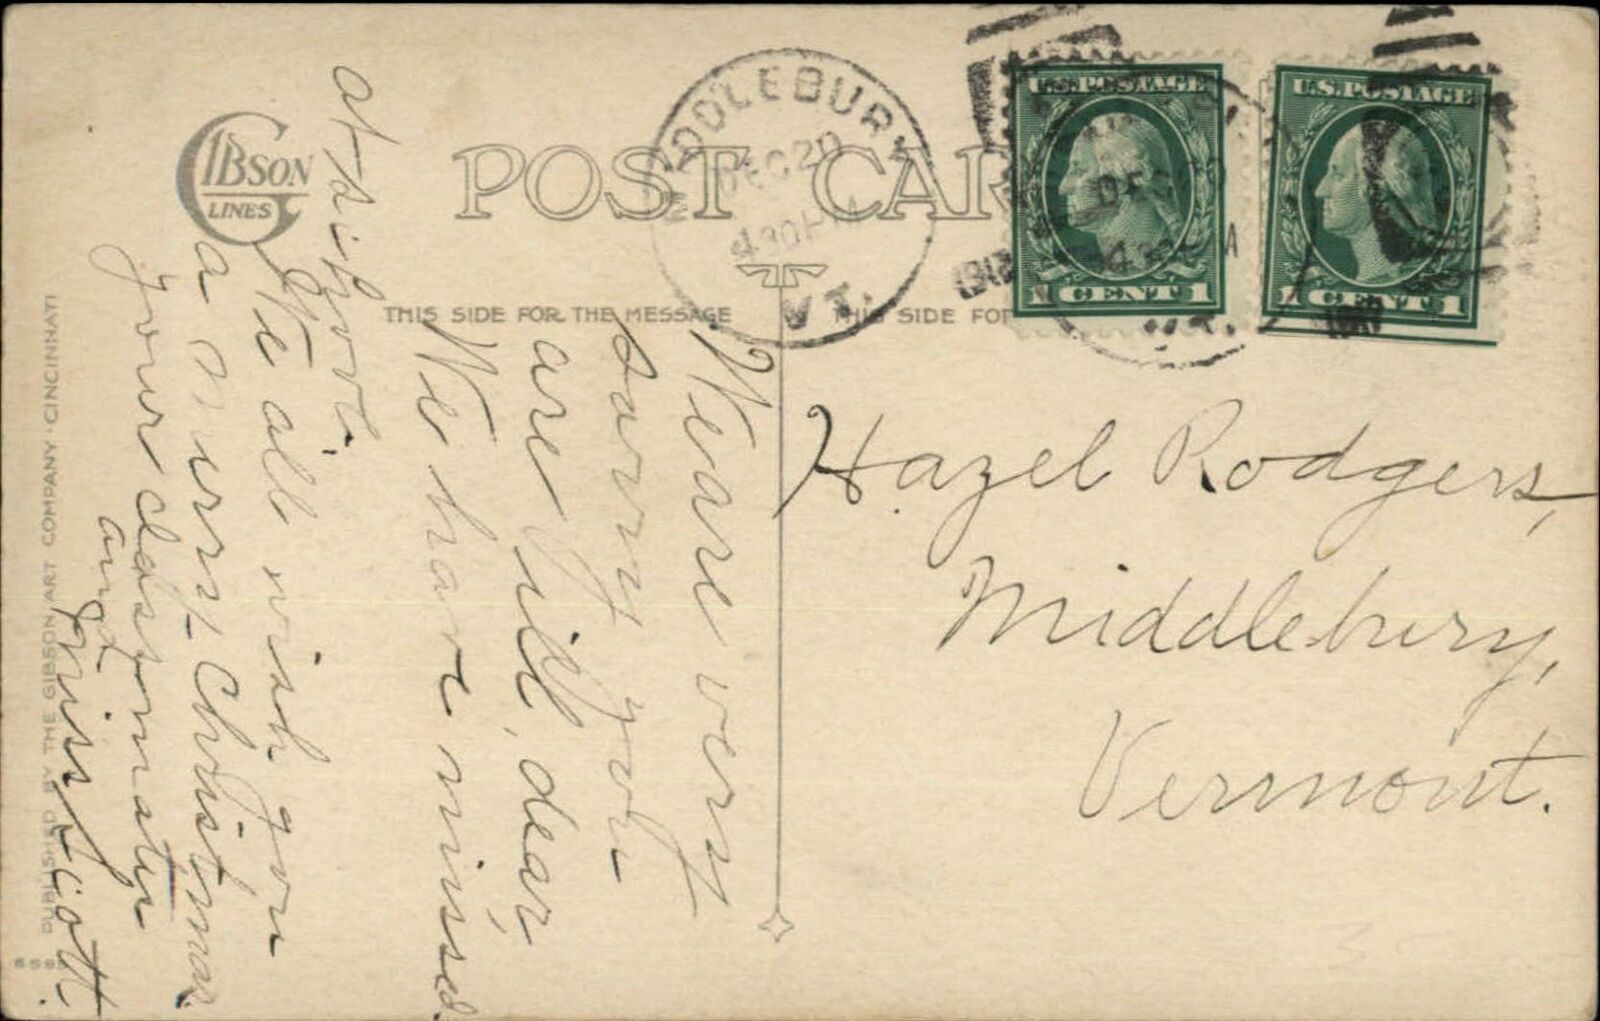 GIBSON
LINES
POST CAR
MIDDLEBURY
DEC 20
4 30 PM
VT.
U.S. POSTAGE
1 CENT 1
U.S. POSTAGE
1 CENT 1
1917
THIS SIDE FOR THE MESSAGE
THIS SIDE FOR
Hazel Rodgers,
Middlebury,
Vermont.
We are very
sorry you
are ill, dear,
We have missed
at school.
We all wish you
a merry Christmas.
your classmates
and
Miss Scott.
PUBLISHED BY THE GIBSON ART COMPANY · CINCINNATI